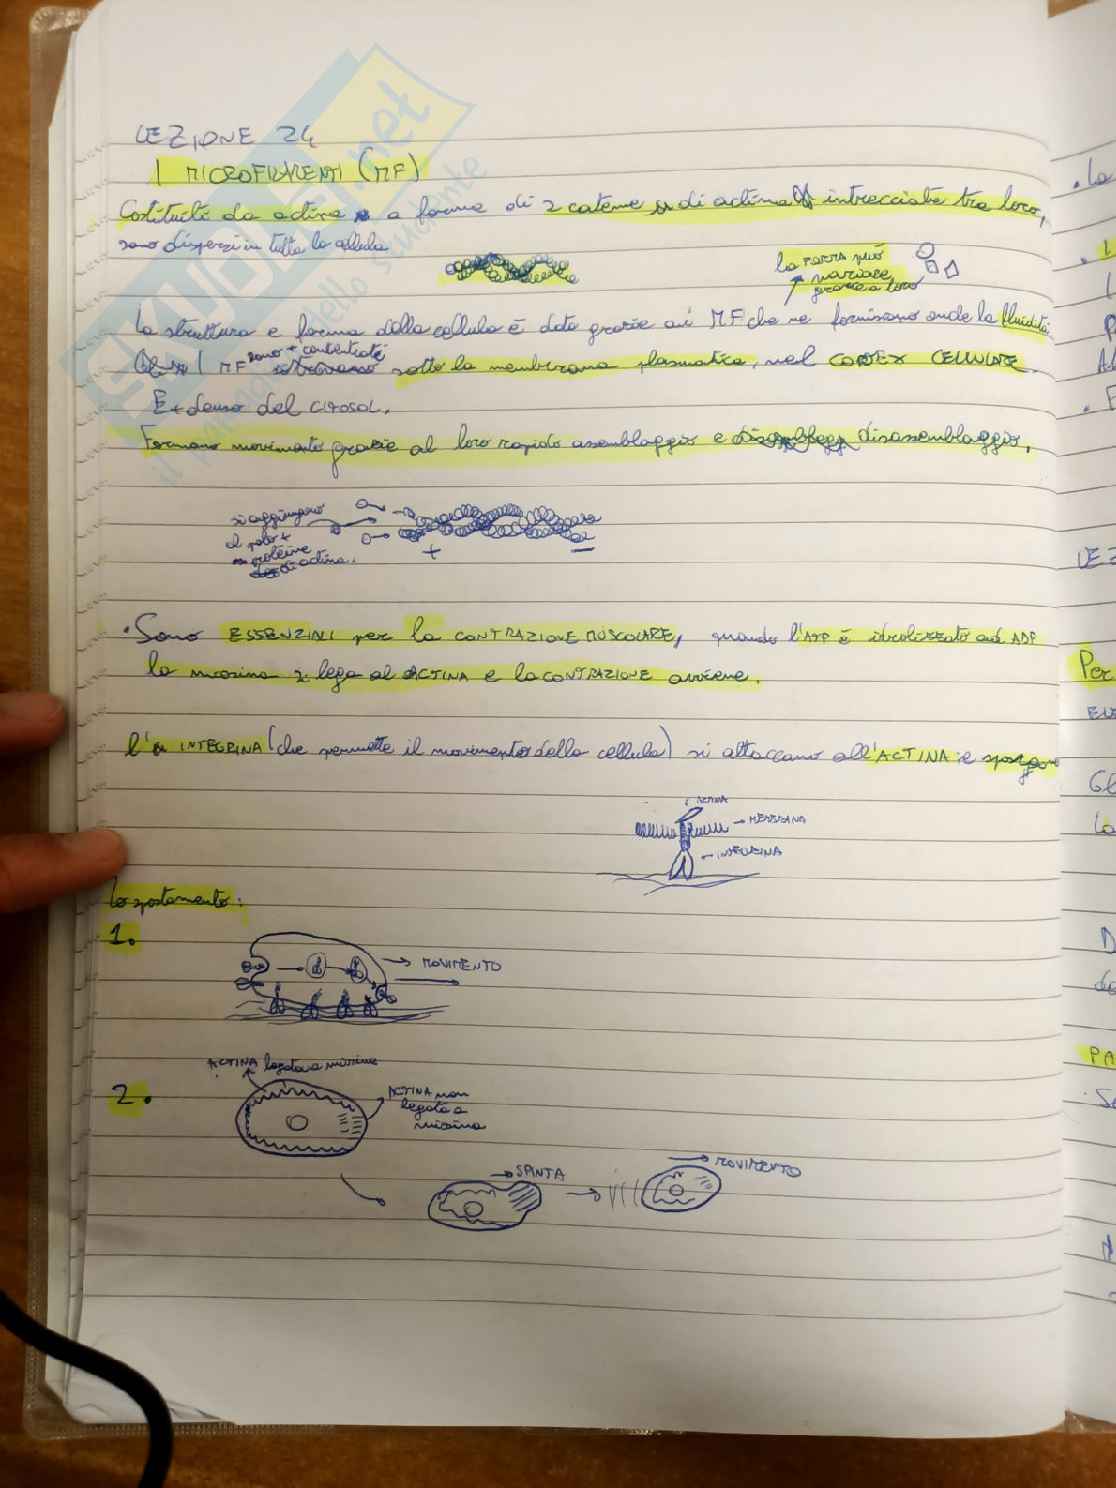 LEZIONE 24
I MICROFILAMENTI (MF)
Costituiti da actina a forma di 2 catene di actina intrecciate tra loro,
sono dispersi in tutta la cellula
la forma può
variare
grazie a loro
La struttura e forma della cellula è data grazie ai MF che ne forniscono anche la fluidità.
I MF sono + concentrati sotto la membrana plasmatica, nel CORTEX CELLULARE.
E + denso del CITOSOL.
Formano movimento grazie al loro rapido assemblaggio e disassemblaggio.
si aggiungono
al polo +
proteine
di actina.
+
-
• Sono ESSENZIALI per la CONTRAZIONE MUSCOLARE, quando l'ATP è idrolizzato ad ADP
la miosina si lega al ACTINA e la CONTRAZIONE avviene.
INTEGRINA (che permette il movimento della cellula) si attaccano all'ACTINA e sporgono
ACTINA
→ MEMBRANA
← INTEGRINA
Lo spostamento:
1.
→ MOVIMENTO
ACTINA legata a miosina
2.
ACTINA non
legata a
miosina
→ SPINTA
→ MOVIMENTO
il paradiso dello studente
.net